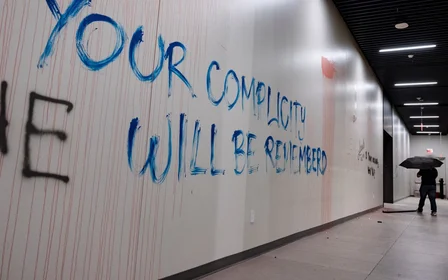 YOUR COMPLICITY
WILL BE REMEMBERD
E